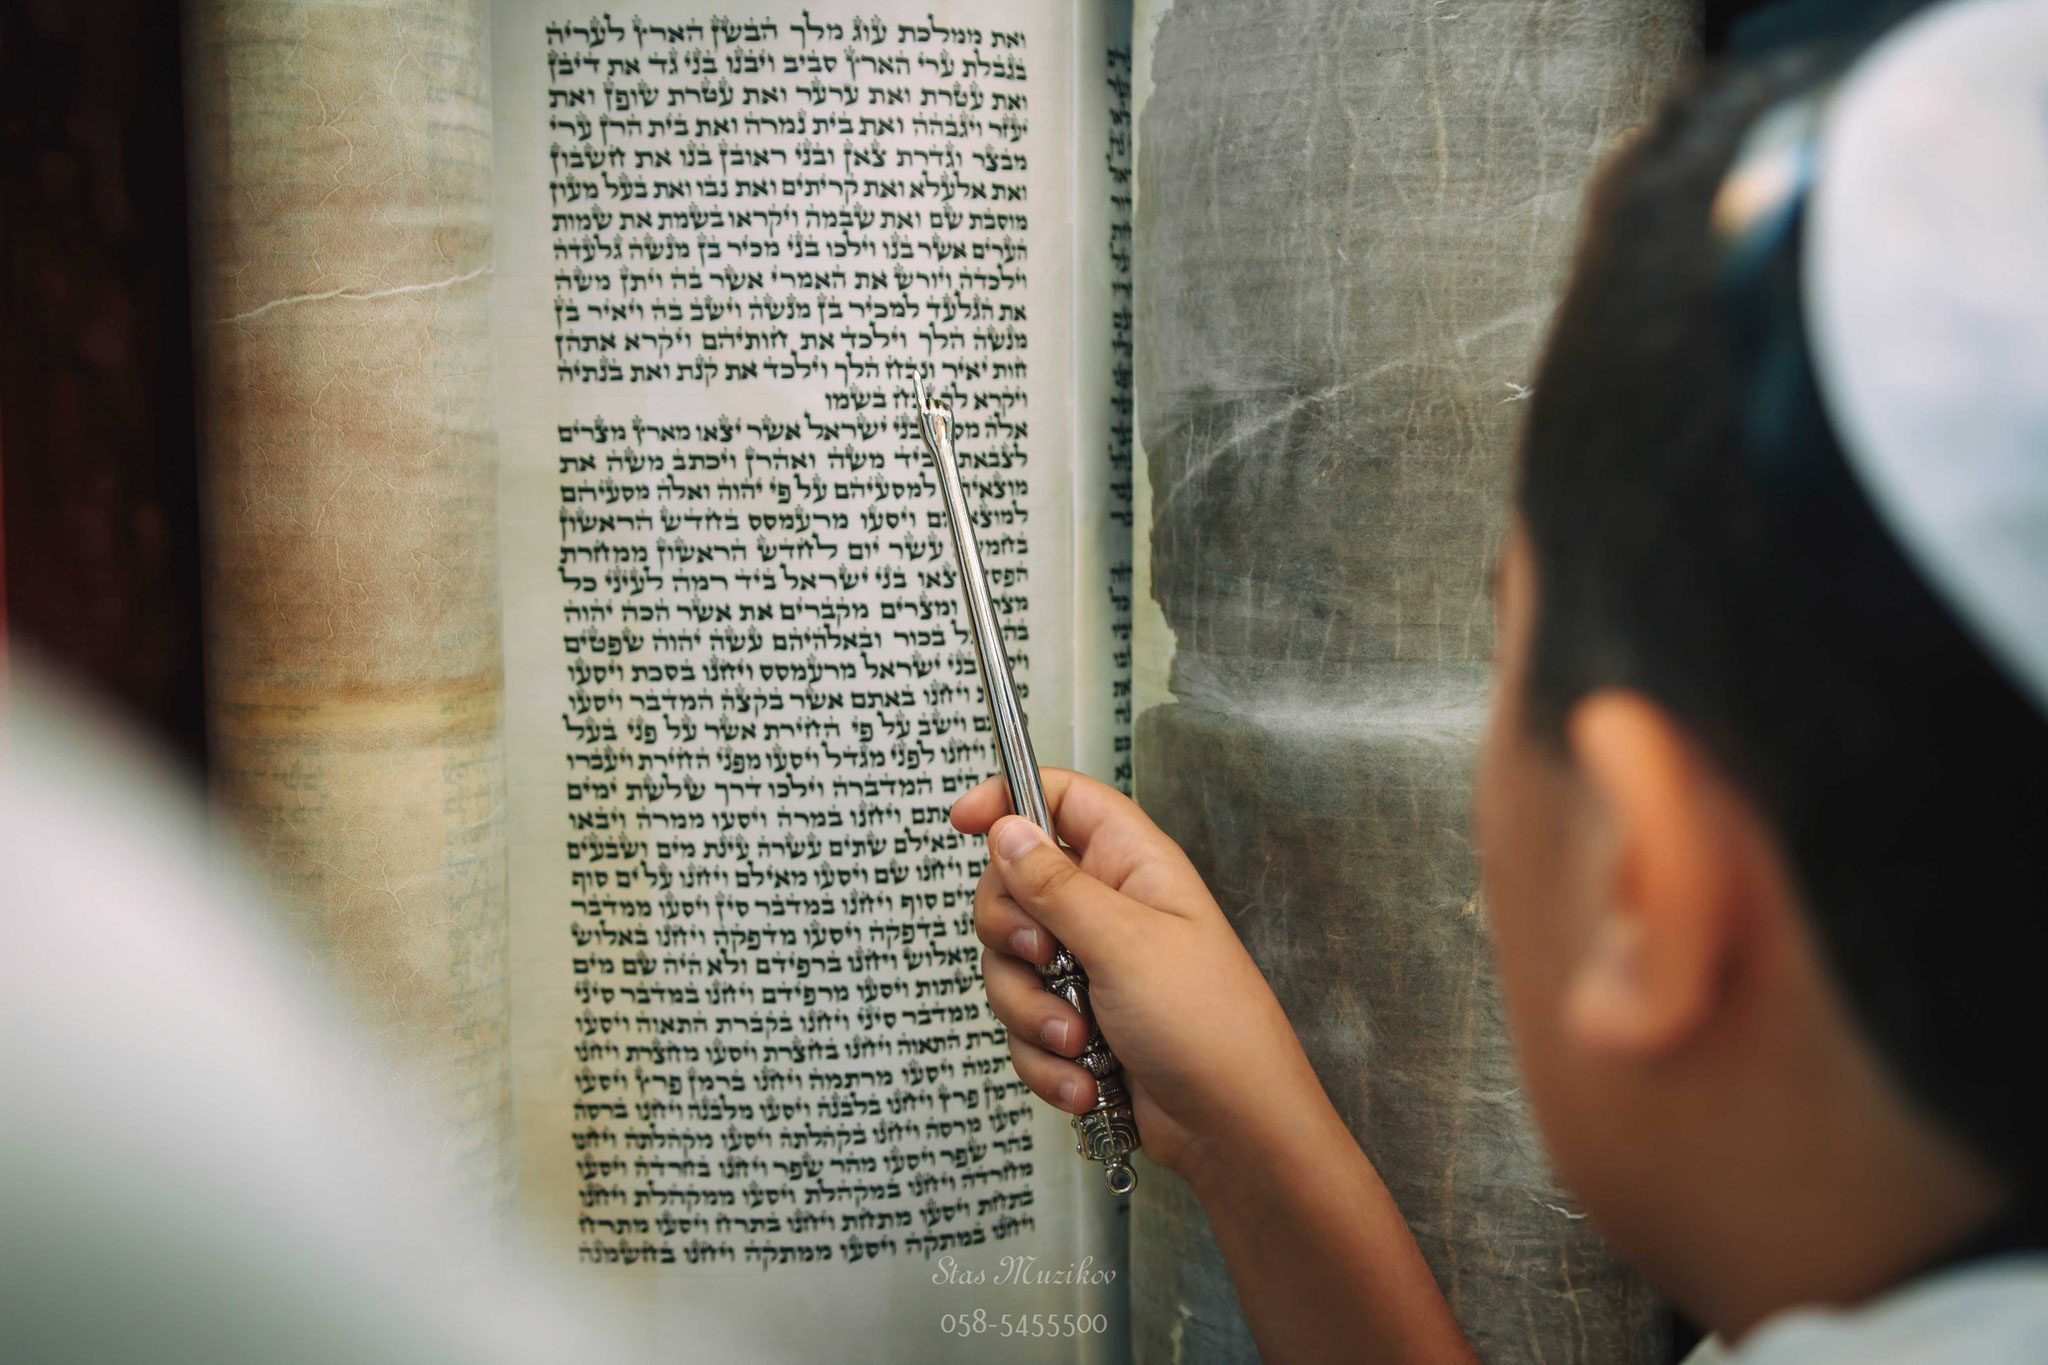 ואת ממלכת עוג מלך הבשן הארץ לעריה
בגבלת ערי הארץ סביב ויבנו בני גד את דיבן
ואת עטרת ואת ערער ואת עטרת שופן ואת
יעזר ויגבהה ואת בית נמרה ואת בית הרן ערי
מבצר וגדרת צאן ובני ראובן בנו את חשבון
ואת אלעלא ואת קריתים ואת נבו ואת בעל מעון
מוסבת שם ואת שבמה ויקראו בשמת את שמות
הערים אשר בנו וילכו בני מכיר בן מנשה גלעדה
וילכדה ויורש את האמרי אשר בה ויתן משה
את הגלעד למכיר בן מנשה וישב בה ויאיר בן
מנשה הלך וילכד את חותיהם ויקרא אתהן
חות יאיר ונבח הלך וילכד את קנת ואת בנתיה
ויקרא בשמו
אלה בני ישראל אשר יצאו מארץ מצרים
לצבאת ביד משה ואהרן ויכתב משה את
למסעיהם על פי יהוה ואלה מסעיהם
ויסעו מרעמסס בחדש הראשון
עשר יום לחדש הראשון ממחרת
בני ישראל ביד רמה לעיני כל
ומצרים מקברים את אשר הכה יהוה
בכור ובאלהיהם עשה יהוה שפטים
בני ישראל מרעמסס ויחנו בסכת ויסעו
ויחנו באתם אשר בקצה המדבר ויסעו
וישב על פי החירת אשר על פני בעל
ויחנו לפני מגדל ויסעו מפני החירת ויעברו
הים המדברה וילכו דרך שלשת ימים
אתם ויחנו במרה ויסעו ממרה ויבאו
ובאילם שתים עשרה עינת מים ושבעים
ויחנו שם ויסעו מאילם ויחנו על ים סוף
סוף ויחנו במדבר סין ויסעו ממדבר
בדפקה ויסעו מדפקה ויחנו באלוש
מאלוש ויחנו ברפידם ולא היה שם מים
לשתות ויסעו מרפידם ויחנו במדבר סיני
ממדבר סיני ויחנו בקברת התאוה ויסעו
התאוה ויחנו בחצרת ויסעו מחצרת ויחנו
ויסעו מרתמה ויחנו ברמן פרץ ויסעו
מרמן פרץ ויחנו בלבנה ויסעו מלבנה ויחנו ברסה
ויסעו מרסה ויחנו בקהלתה ויסעו מקהלתה ויחנו
בהר שפר ויסעו מהר שפר ויחנו בחרדה ויסעו
מחרדה ויחנו במקהלת ויסעו ממקהלת ויחנו
בתחת ויסעו מתחת ויחנו בתרח ויסעו מתרח
ויחנו במתקה ויסעו ממתקה ויחנו בחשמנה
Stas Muzikov
058-5455500